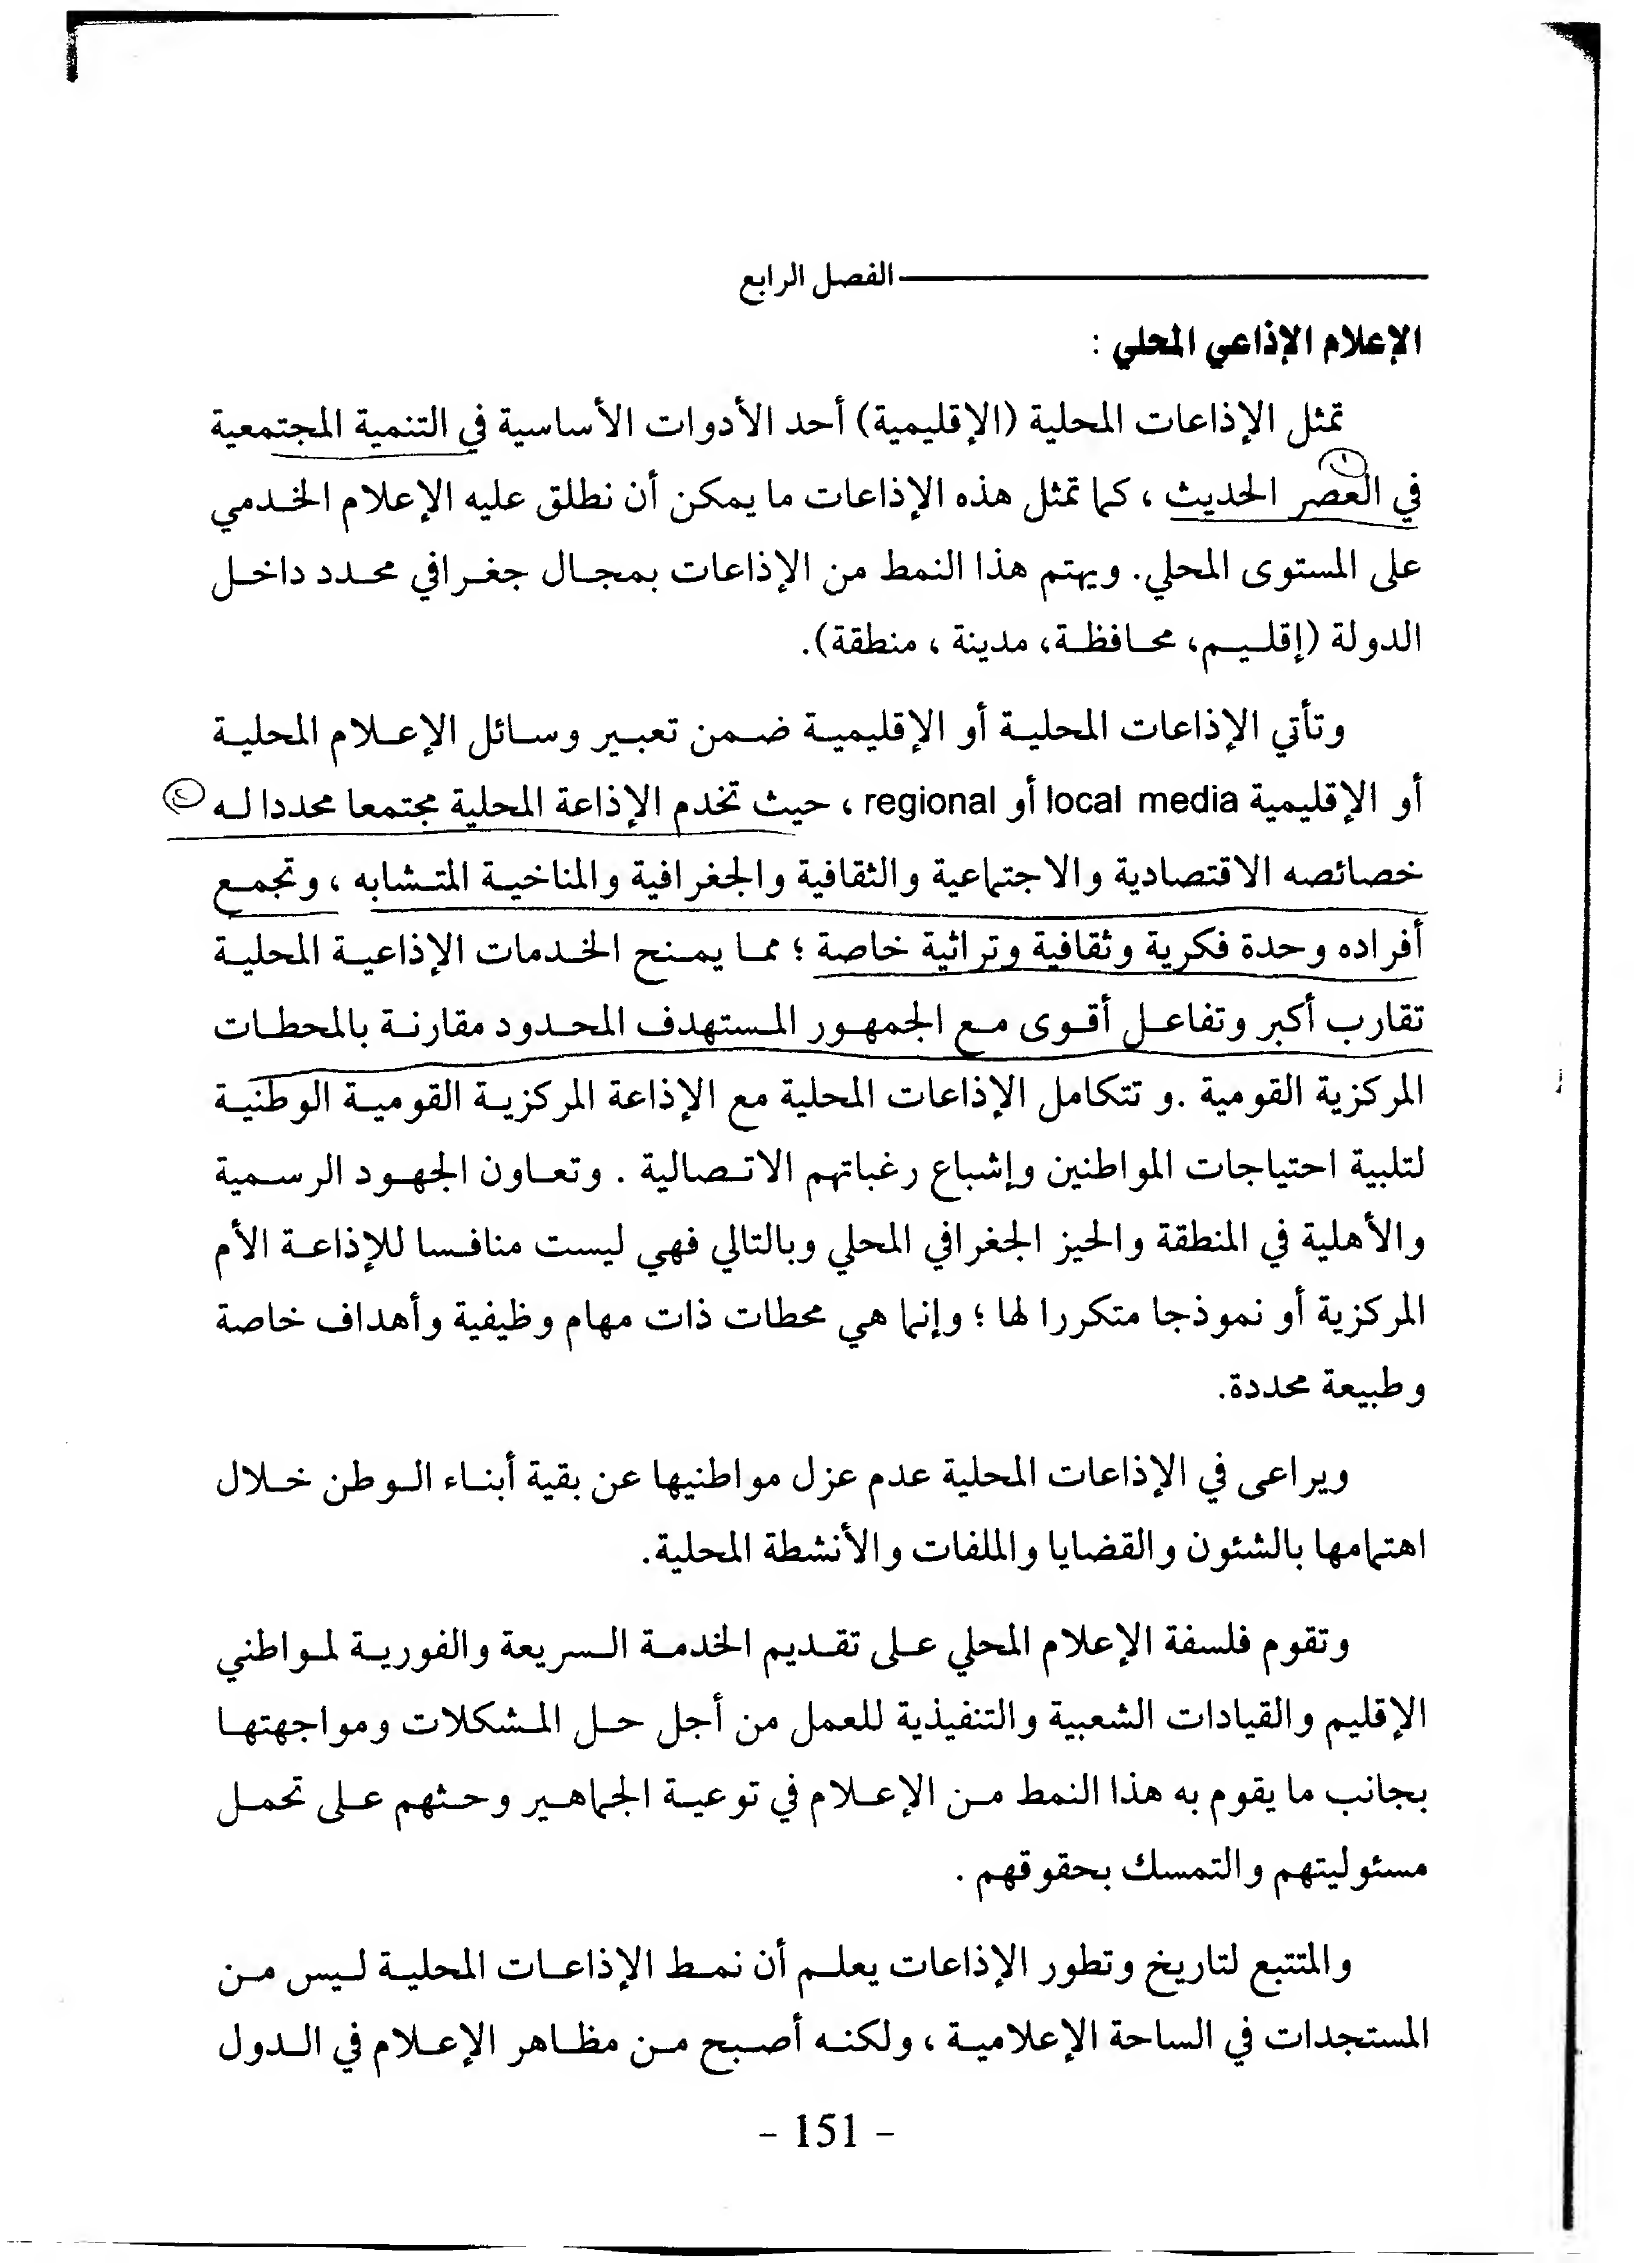 الفصل الرابع
الإعلام الإذاعي المحلي :
تمثل الإذاعات المحلية (الإقليمية) أحد الأدوات الأساسية في التنمية المجتمعية
في العصر الحديث ، كما تمثل هذه الإذاعات ما يمكن أن نطلق عليه الإعلام الخدمي
على المستوى المحلي. ويهتم هذا النمط من الإذاعات بمجال جغرافي محدد داخل
الدولة (إقليم، محافظة، مدينة ، منطقة).
وتأتي الإذاعات المحلية أو الإقليمية ضمن تعبير وسائل الإعلام المحلية
أو الإقليمية local media أو regional ، حيث تخدم الإذاعة المحلية مجتمعا محددا له
خصائصه الاقتصادية والاجتماعية والثقافية والجغرافية والمناخية المتشابه ، وتجمع
أفراده وحدة فكرية وثقافية وتراثية خاصة ؛ مما يمنح الخدمات الإذاعية المحلية
تقارب أكبر وتفاعل أقوى مع الجمهور المستهدف المحدود مقارنة بالمحطات
المركزية القومية .و تتكامل الإذاعات المحلية مع الإذاعة المركزية القومية الوطنية
لتلبية احتياجات المواطنين وإشباع رغباتهم الاتصالية . وتعاون الجهود الرسمية
والأهلية في المنطقة والحيز الجغرافي المحلي وبالتالي فهي ليست منافسا للإذاعة الأم
المركزية أو نموذجا متكررا لها ؛ وإنما هي محطات ذات مهام وظيفية وأهداف خاصة
وطبيعة محددة.
ويراعى في الإذاعات المحلية عدم عزل مواطنيها عن بقية أبناء الوطن خلال
اهتمامها بالشئون والقضايا والملفات والأنشطة المحلية.
وتقوم فلسفة الإعلام المحلي على تقديم الخدمة السريعة والفورية لمواطني
الإقليم والقيادات الشعبية والتنفيذية للعمل من أجل حل المشكلات ومواجهتها
بجانب ما يقوم به هذا النمط من الإعلام في توعية الجماهير وحثهم على تحمل
مسئوليتهم والتمسك بحقوقهم .
والمتتبع لتاريخ وتطور الإذاعات يعلم أن نمط الإذاعات المحلية ليس من
المستجدات في الساحة الإعلامية ، ولكنه أصبح من مظاهر الإعلام في الدول
- 151 -